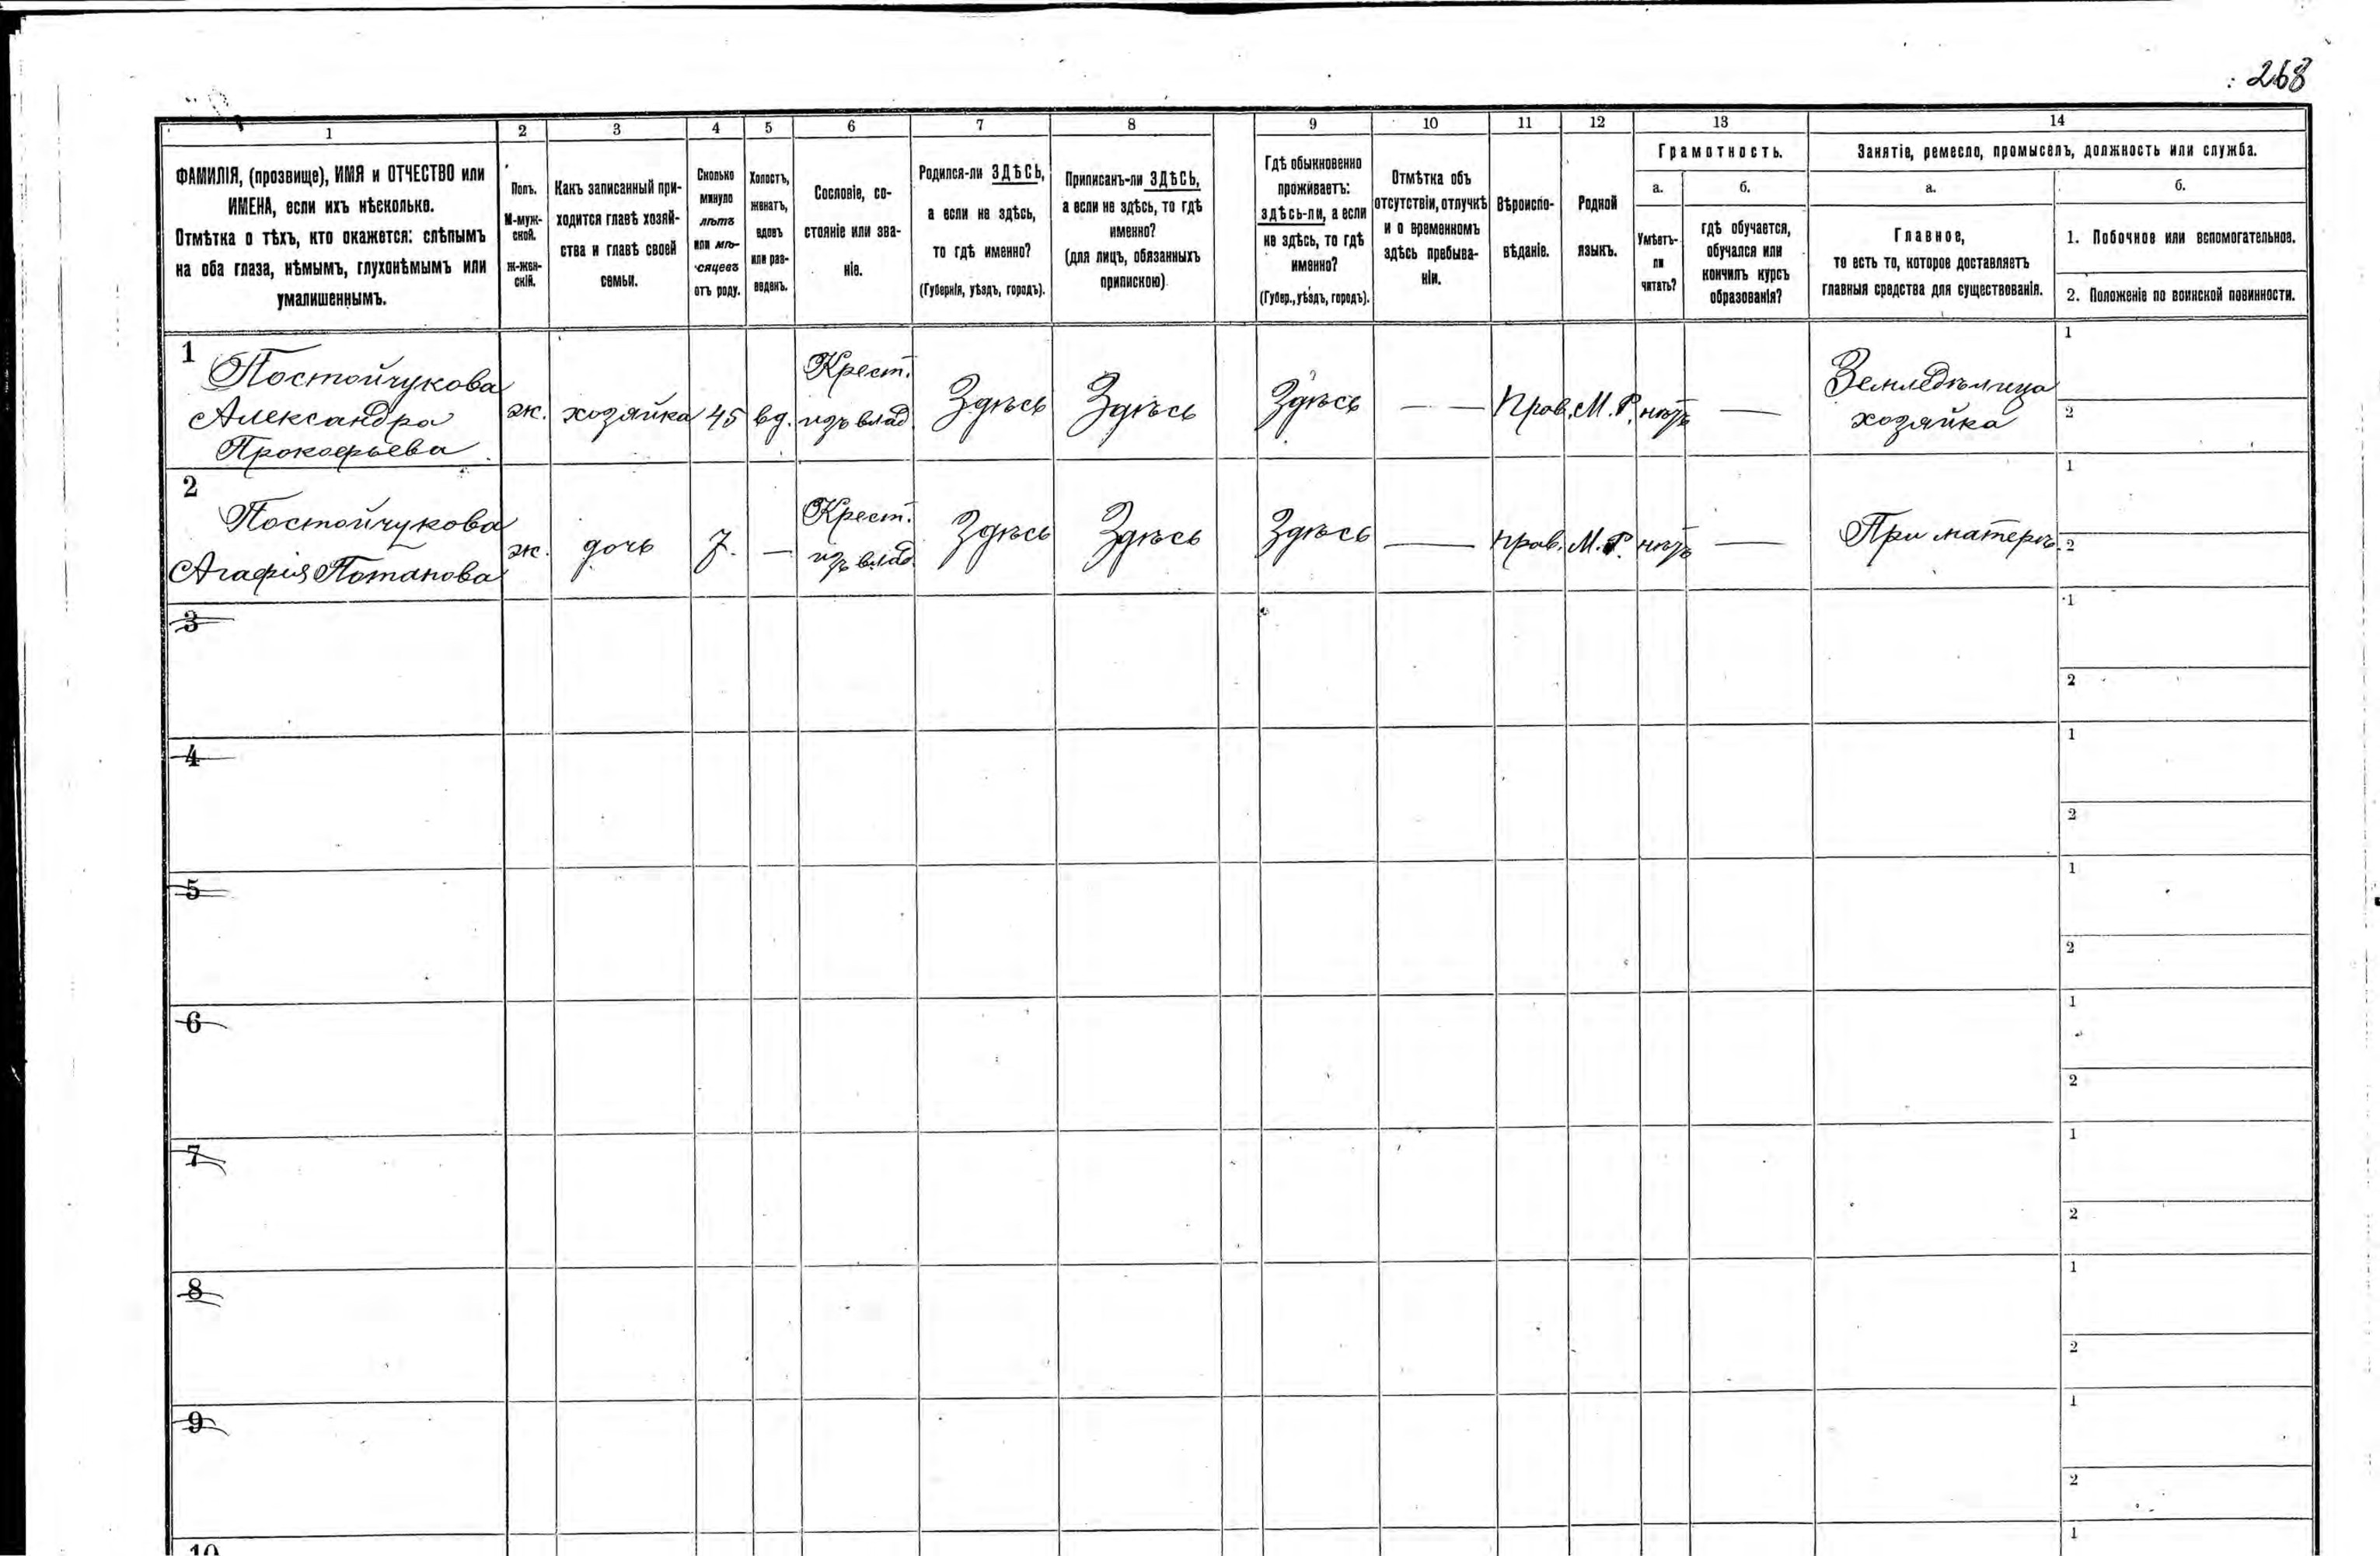 268
1 2 3 4 5 6 7 8 9 10 11 12 13 14
ФАМИЛІЯ, (прозвище), ИМЯ и ОТЧЕСТВО или
ИМЕНА, если ихъ нѣсколько.
Отмѣтка о тѣхъ, кто окажется: слѣпымъ
на оба глаза, нѣмымъ, глухонѣмымъ или
умалишеннымъ.
Полъ.
М-муж-
ской.
ж-жен-
скій.
Какъ записанный при-
ходится главѣ хозяй-
ства и главѣ своей
семьи.
Сколько
минуло
лѣтъ
или мѣ-
сяцевъ
отъ роду.
Холостъ,
женатъ,
вдовъ
или раз-
веденъ.
Сословіе, со-
стояніе или зва-
ніе.
Родился-ли ЗДѢСЬ,
а если не здѣсь,
то гдѣ именно?
(Губернія, уѣздъ, городъ).
Приписанъ-ли ЗДѢСЬ,
а если не здѣсь, то гдѣ
именно?
(для лицъ, обязанныхъ
припискою)
Гдѣ обыкновенно
проживаетъ:
здѣсь-ли, а если
не здѣсь, то гдѣ
именно?
(Губер., уѣздъ, городъ).
Отмѣтка объ
отсутствіи, отлучкѣ
и о временномъ
здѣсь пребыва-
ніи.
Вѣроиспо-
вѣданіе.
Родной
языкъ.
Грамотность.
а.
Умѣетъ-
ли
читать?
б.
гдѣ обучается,
обучался или
кончилъ курсъ
образованія?
Занятіе, ремесло, промыселъ, должность или служба.
а.
Главное,
то есть то, которое доставляетъ
главныя средства для существованія.
б.
1. Побочное или вспомогательное.
2. Положеніе по воинской повинности.
1
Постойчукова
Александра
Прокофьева
ж.
хозяйка
45
вд.
Крест.
изъ влад.
Здѣсь
Здѣсь
Здѣсь
— —
Прав.
М. Р.
нѣтъ
—
Земледѣлица
хозяйка
1
2
2
Постойчукова
Агафія Потапова
ж.
дочь
7.
—
Крест.
изъ влад.
Здѣсь
Здѣсь
Здѣсь
—
Прав.
М. Р.
нѣтъ
—
При матери
1
2
3
1
2
4
1
2
5
1
2
6
1
2
7
1
2
8
1
2
9
1
2
10
1